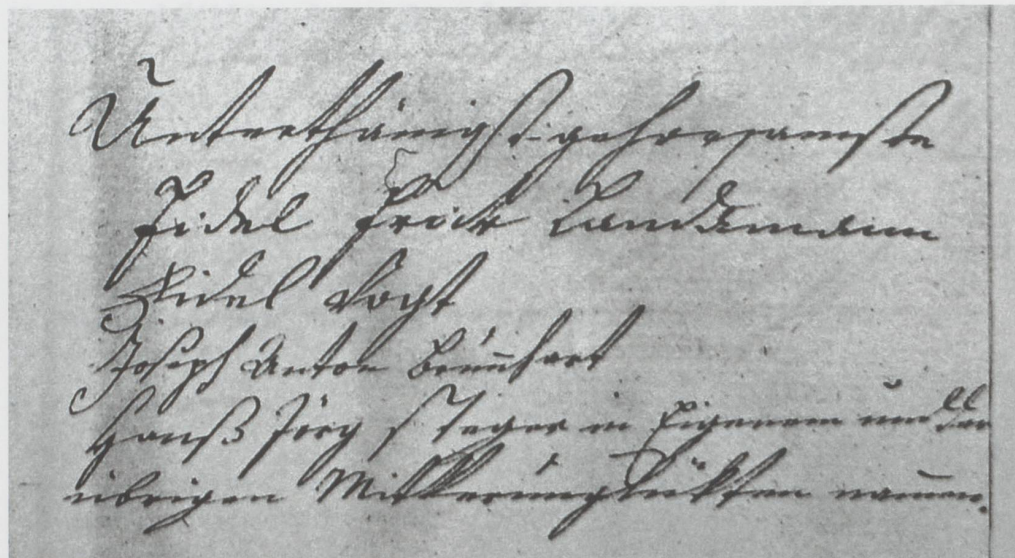 Unterthänigst-gehorsamste
Fidel Frick Landammann
Fidel Vogt
Joseph Anton Brunhart
Hanß Jörg Steger in Eigenem und der
übrigen Mittverunglükten namen.